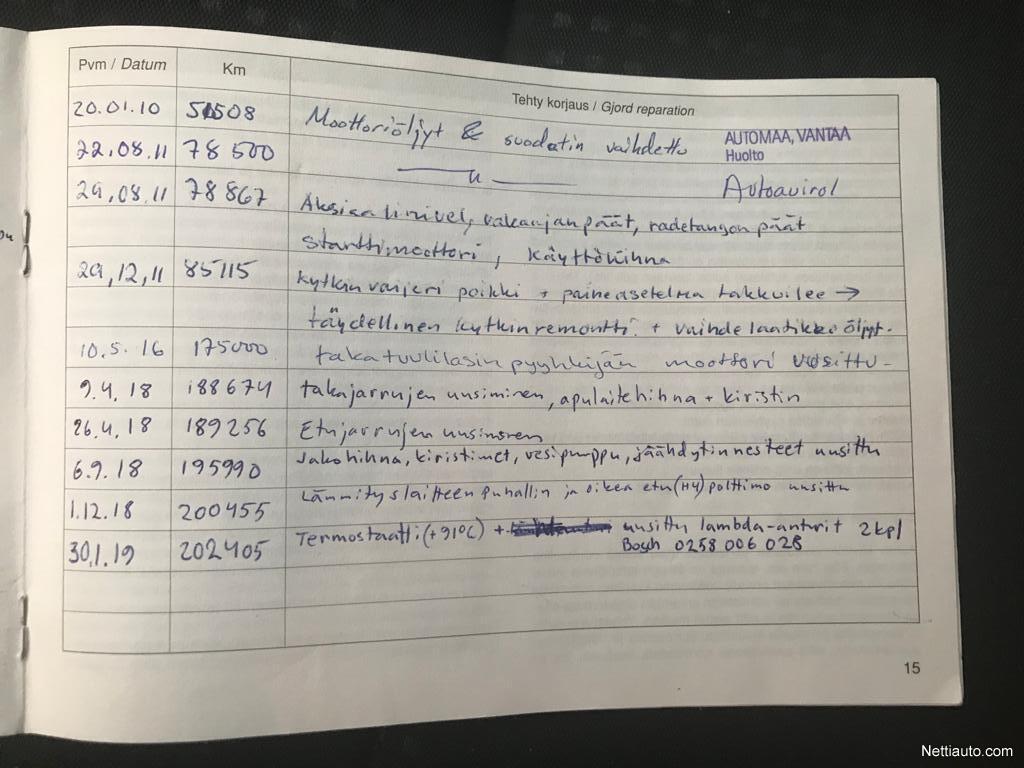 Pvm / Datum Km Tehty korjaus / Gjord reparation
20.01.10 51508 Moottoriöljyt & suodatin vaihdettu AUTOMAA, VANTAA
Huolto
22.08.11 78500 —— u —— Autoavirol
29.08.11 78867 Aksiaalinivel, vakaajanpäät, raidetangon päät
starttimoottori, Käyttöhihna
29.12.11 85115 Kytkin vaijeri poikki + paineasetelma takkuilee →
täydellinen kytkinremontti + vaihdelaatikko öljyt.
10.5.16 175000 takatuulilasin pyyhkijän moottori uusittu-
9.4.18 188674 takajarrujen uusiminen, apulaitehihna + kiristin
26.4.18 189256 Etujarrujen uusiminen
6.9.18 195990 Jakohihna, kiristimet, vesipumppu, jäähdytinnesteet uusittu
1.12.18 200455 Lämmityslaitteen puhallin ja oikea etu (H4) polttimo uusittu
30.1.19 202405 Termostaatti (+91°C) + uusittu lambda-anturit 2kpl
Bosch 0258 006 028
15
Nettiauto.com